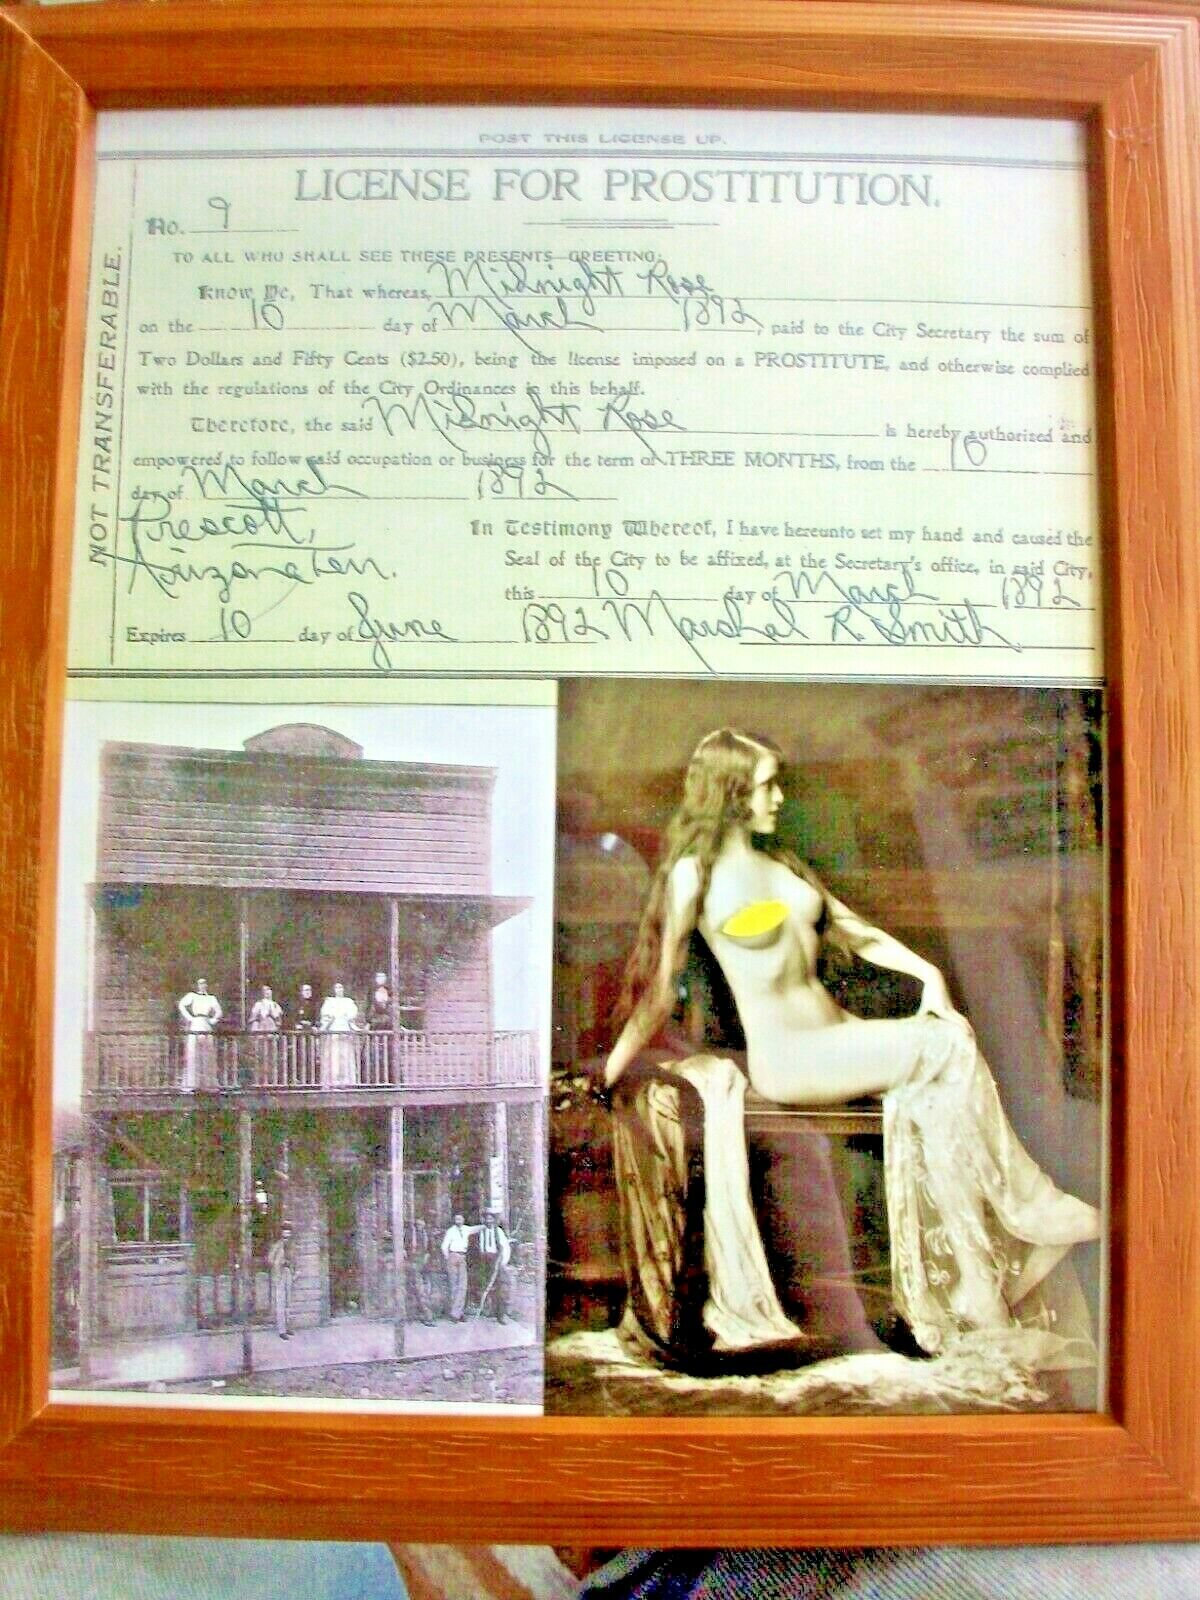 POST THIS LICENSE UP.
LICENSE FOR PROSTITUTION.
No. 9
NOT TRANSFERABLE.
TO ALL WHO SHALL SEE THESE PRESENTS—GREETING:
Know Ye, That whereas, Midnight Rose
on the 10 day of March 1892, paid to the City Secretary the sum of
Two Dollars and Fifty Cents ($2.50), being the license imposed on a PROSTITUTE, and otherwise complied
with the regulations of the City Ordinances in this behalf.
Therefore, the said Midnight Rose is hereby authorized and
empowered to follow said occupation or business for the term of THREE MONTHS, from the 10
day of March 1892
Prescott,
Arizona Terr.
In Testimony Whereof, I have hereunto set my hand and caused the
Seal of the City to be affixed, at the Secretary's office, in said City,
this 10 day of March 1892
Expires 10 day of June 1892 Marshal R. Smith